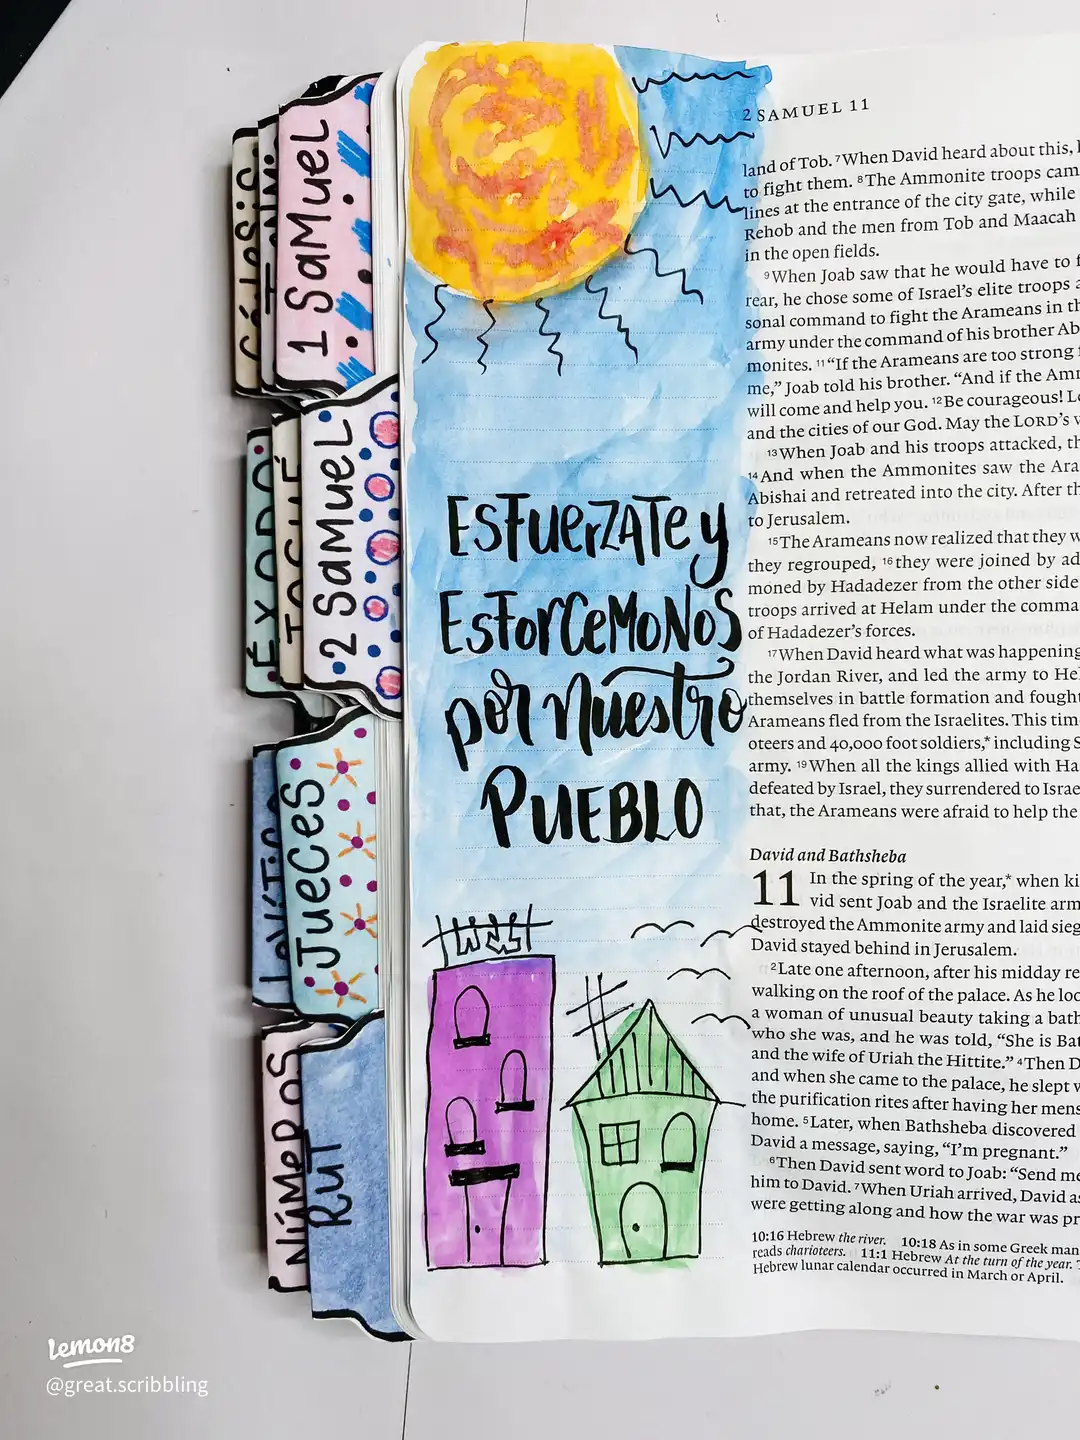 2 SAMUEL 11
land of Tob. 7When David heard about this,
to fight them. 8The Ammonite troops cam
lines at the entrance of the city gate, while
Rehob and the men from Tob and Maacah
in the open fields.
9When Joab saw that he would have to f
rear, he chose some of Israel's elite troops a
sonal command to fight the Arameans in th
army under the command of his brother Ab
monites. 11"If the Arameans are too strong
me," Joab told his brother. "And if the Amm
will come and help you. 12Be courageous! Le
and the cities of our God. May the LORD's w
13When Joab and his troops attacked, th
14And when the Ammonites saw the Ara
Abishai and retreated into the city. After th
to Jerusalem.
15The Arameans now realized that they w
they regrouped, 16they were joined by ad
moned by Hadadezer from the other side
troops arrived at Helam under the comma
of Hadadezer's forces.
17When David heard what was happening
the Jordan River, and led the army to He
themselves in battle formation and fought
Arameans fled from the Israelites. This tim
oteers and 40,000 foot soldiers,* including S
army. 19When all the kings allied with Ha
defeated by Israel, they surrendered to Israe
that, the Arameans were afraid to help the
David and Bathsheba
11 In the spring of the year,* when ki
vid sent Joab and the Israelite arm
destroyed the Ammonite army and laid sieg
David stayed behind in Jerusalem.
2Late one afternoon, after his midday re
walking on the roof of the palace. As he loo
a woman of unusual beauty taking a bath
who she was, and he was told, "She is Bat
and the wife of Uriah the Hittite." 4Then D
and when she came to the palace, he slept w
the purification rites after having her mens
home. 5Later, when Bathsheba discovered
David a message, saying, "I'm pregnant."
6Then David sent word to Joab: "Send me
him to David. 7When Uriah arrived, David as
were getting along and how the war was pr
10:16 Hebrew the river. 10:18 As in some Greek man
reads charioteers. 11:1 Hebrew At the turn of the year.
Hebrew lunar calendar occurred in March or April.
EsfuerzATe y
EsforCeMoNoS
por nuestro
PUEBLO
1 SaMueL
2 SaMueL
ÉXODO
JOSUÉ
JueCeS
NúMeROS
RuT
Lemon8
@great.scribbling